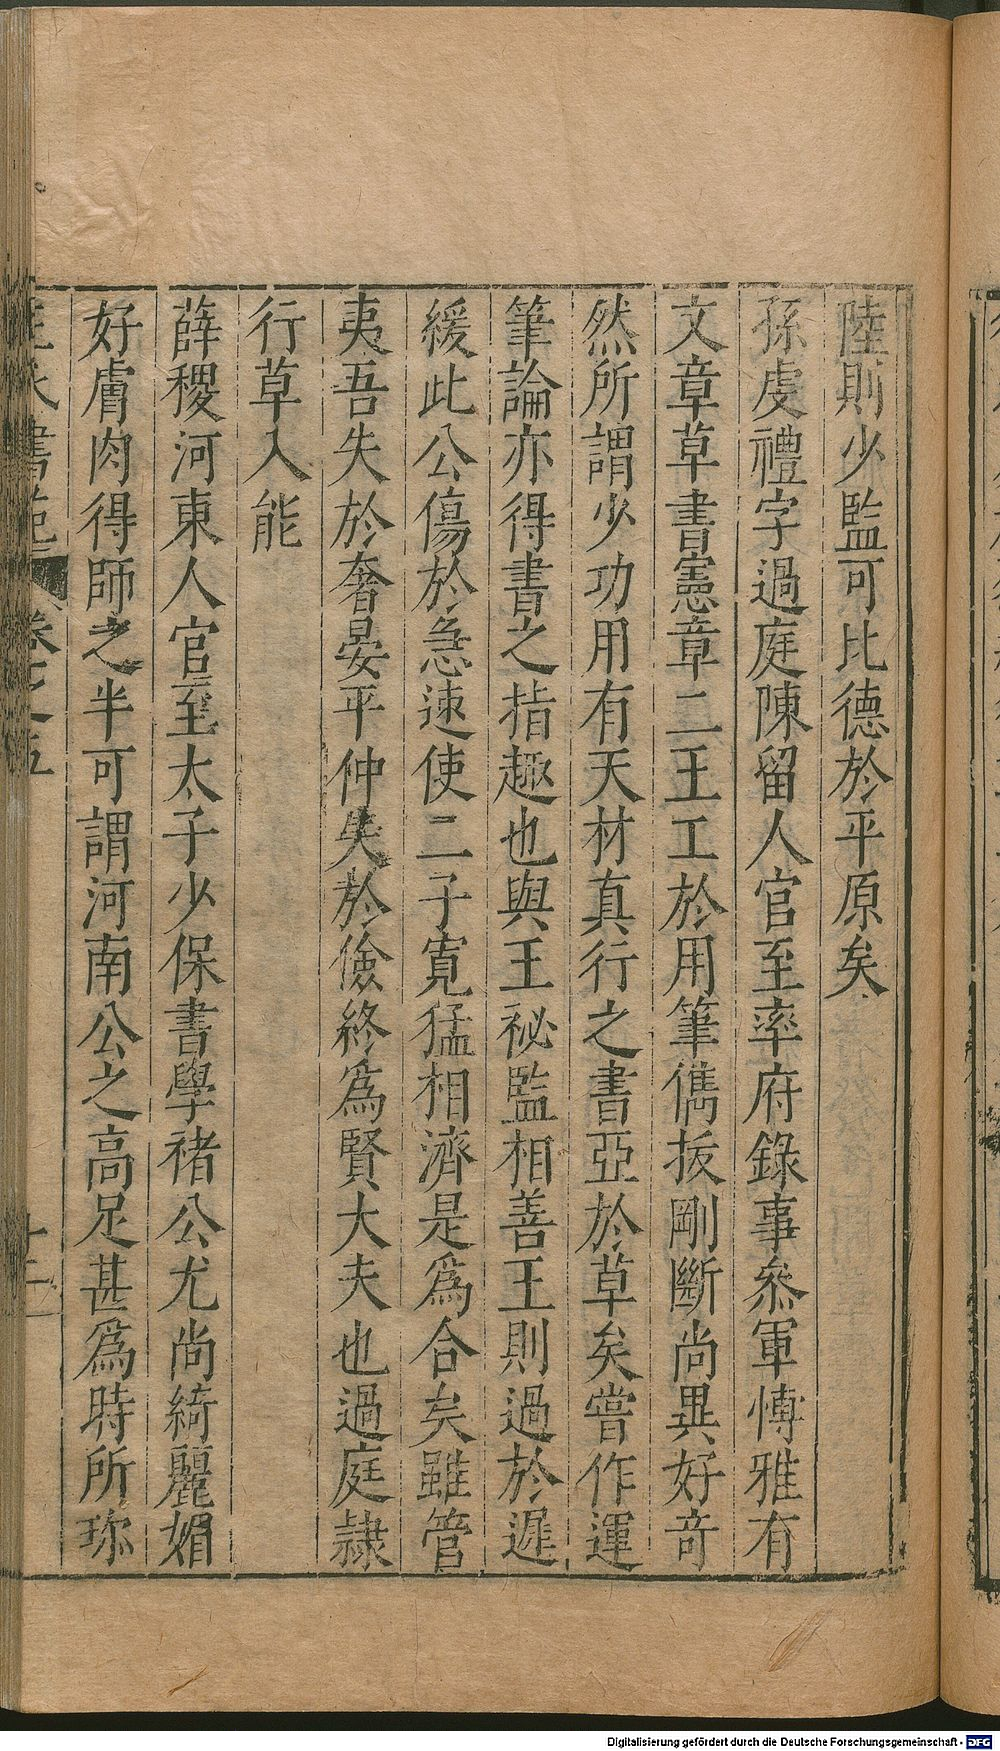 陸則少監可比德於平原矣
孫虔禮字過庭陳留人官至率府錄事叅軍愽雅有
文章草書憲章二王工於用筆儁拔剛斷尚異好竒
然所謂少功用有天材真行之書亞於草矣嘗作運
筆論亦得書之指趣也與王祕監相善王則過於遲
緩此公傷於急速使二子寬猛相濟是爲合矣雖管
夷吾失於奢晏平仲失於儉終爲賢大夫也過庭隸
行草入能
薛稷河東人官至太子少保書學褚公尤尚綺麗媚
好膚肉得師之半可謂河南公之高足甚爲時所珎
書苑 卷七之五 十二
Digitalisierung gefördert durch die Deutsche Forschungsgemeinschaft - DFG